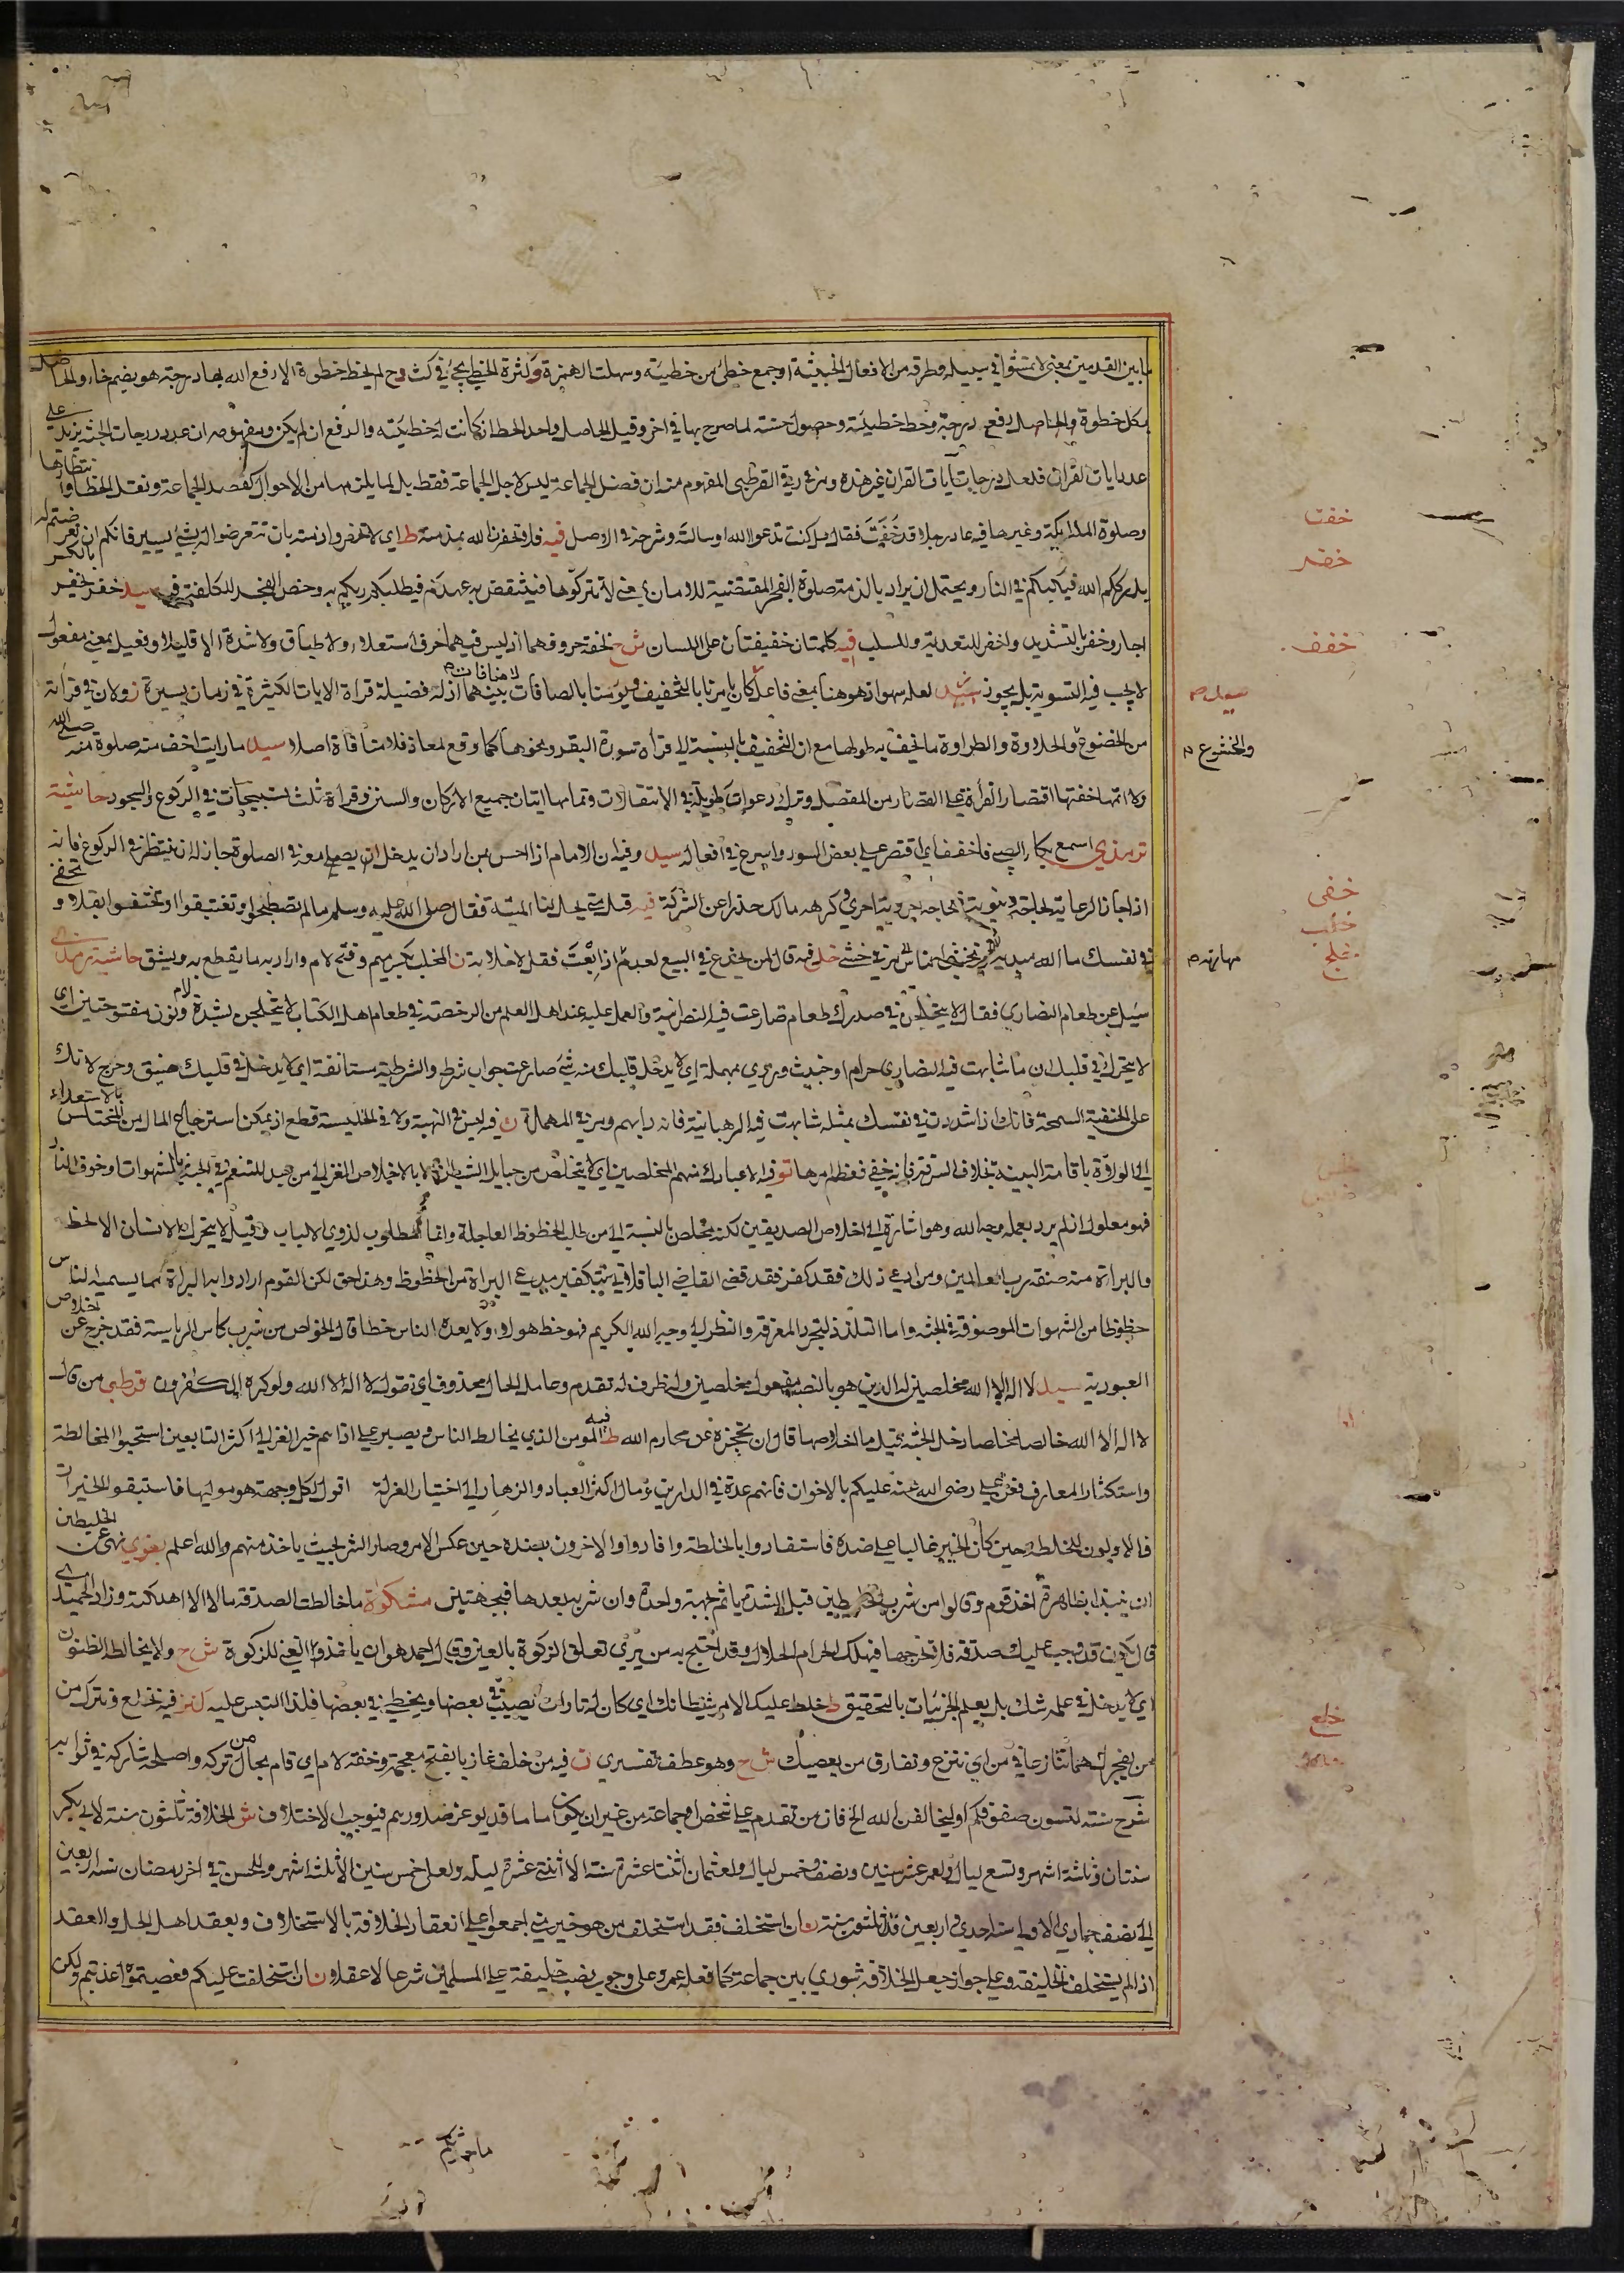 ما بين القدمين بمعنى لا تمشوا في سبيله وطرقه من الافعال الخبيثة او جمع خطئ من خطيئة وسهلت الهمزة وكثرة الخطى يجئ في كث وح لم يخط خطوة الا رفع الله بها درجة هو بضم خاء والحاصل
بكل خطوة والحاصل رفع درجة وحط خطيئة وحصول حسنة لما صرح بها في اخر وقيل الحاصل واحد الحط ان كانت له خطيئة والرفع ان لم يكن ومفهومه ان عدد درجات الجنة يزيد على
عدد ايات القران فلعل درجات آيات القران غير هذه القرطبي المفهوم منه ان فضل الجماعة ليس لاجل الجماعة فقط بل لما يلزمها من الاحوال كقصد الجماعة ونقل الخطا وانتظارها
وصلوة الملائكة وغيرها فيه عاد رجلا قد خفت فقال هل كنت تدعو الله او سالته وشرحه في الاصل فيه فلا تخفرن الله بذمته ط اي لا تخفروا ذمته بان تتعرضوا له بشئ يسير فانكم ان تعرضتم له
يدرككم الله فيكبكم في النار ويحتمل ان يراد بالذمة صلوة الفجر المقتضية للامان يعني لا تتركوها فينتقض به عهدكم فيطلبكم ربكم به وخص الفجر للكلفة فيه سيد خفر يخفر بالكسر
اجار وخفر بالتشديد واخفر للتعدية والسلب فيه كلمتان خفيفتان على اللسان ش ح لخفة حروفهما اذ ليس فيهما حرف استعلاء ولا طباق ولا شدة الا قليلا وفعيل بمعنى مفعول
لا يجب فيه التسوية بل يجوز سيد لعله سهو اذ هو هنا بمعنى فاعل كان يامرنا بالتخفيف ويؤمنا بالصافات لا منافاة بينهما اذ له فضيلة قراة الايات الكثيرة في زمان يسيرة ز ولان في قراته
سبيل صح
من الخضوع والحلاوة والطراوة ما تخف به طولها مع ان التخفيف بالنسبة الى قراة سورة البقرة ونحوها كما وقع لمعاذ فلا منافاة اصلا سيد ما رايت اخف منه صلوة منه صلى الله
والخشوع م
ولا اتمها خفتها اقتصار القراة على القصار من المفصل وترك دعوات طويلة في الانتقالات وتمامها اتيان جميع الاركان والسنن وقراة ثلث تسبيحات في الركوع والسجود حاشية
ترمذي اسمع بكاء الصبي فاخفف اي اقتصر على بعض السور واسرع في افعاله سيد وفيه ان الامام اذا احس بمن اراد ان يدخل ان يصلي معه في الصلوة جاز له ان ينتظر في الركوع فانه
اذا جاز الرعاية لحاجة دنيوية فلحاجة اخروية احرى وكرهه مالك حذرا عن الشركة فيه قيل متى يحل لنا الميتة فقال صلى الله عليه وسلم ما لم تصطبحوا وتغتبقوا او تختفوا بقلا و تخفي
في نفسك ما الله مبديه في خشي خلب فيه قال لمن يخدع في البيع لعبد اذا بعت فقل لا خلابة ن المخلب بكسر ميم وفتح لام واراد به ما يقطع به ويشق حاشية ترمذي
سئل عن طعام النصارى فقال لا يتخلجن في صدرك طعام ضارعت فيه النصرانية والعمل عليه عند اهل العلم من الرخصة في طعام اهل الكتاب لا يتخلجن بشدة لام ونون مفتوحتين اي
لا يتحرك في قلبك ان ما شابهت فيه النصارى حرام او خبيث ويروى بمهملة اي لا يدخل قلبك منه شئ ضارعت جواب شرط والشرطية مستانفة اي لا يدخل في قلبك ضيق وحرج لانك
على الحنفية السمحة فانك اذا شددت في نفسك بمثله شابهت فيه الرهبانية فانه دابهم ومر في المهملة ن فيه ليس في النهبة ولا في الخليسة قطع اذ يمكن استرجاع المال من المختلس بالاستعداء
الى الولاة باقامة البينة بخلاف السرقة فانه خفي فعظم امرها تو فيه الا عبادك منهم المخلصين اي لا يتخلص من حبايل الشيطان الا بالاخلاص الغزالي من عبد للتنعم في الجنة بالشهوات او خوف النار
فهو معلول اذ لم يرد بعمله وجه الله وهو اشارة الى اخلاص الصديقين لكنه مخلص بالنسبة الى من طلب الحظوظ العاجلة وانما المطلوب لذوي الالباب وقيل لا يتحرك الانسان الا لحظ
والبراءة منه صفة رب العالمين ومن ادعى ذلك فقد كفر فقد قضى القاضي الباقلاني بتكفير مدعي البراءة من الحظوظ وهذا حق لكن القوم ارادوا به البراءة مما يسميه الناس
حظوظا من الشهوات الموصوفة في الجنة واما التلذذ بمجرد المعرفة والنظر الى وجه الله الكريم فهو حظ هولاء ولا يعده الناس حظا قال الخواص من شرب كاس الرياسة فقد خرج عن اخلاص
العبودية سيد لا اله الا الله مخلصين له الدين هو بالنصب مفعول مخلصين وله ظرف له تقدم وعامل الحال محذوف اي نقول لا اله الا الله ولو كره الكافرون قرطبي من قال
لا اله الا الله خالصا مخلصا دخل الجنة قيل ما اخلاصها قال ان تحجزه عن محارم الله ط فيه المؤمن الذي يخالط الناس ويصبر على اذاهم خير الغزالي اكثر التابعين استحبوا المخالطة
واستكثار المعارف فعن علي رضي الله عنه عليكم بالاخوان فانهم عدة في الدارين ومال اكثر العباد والزهاد الى اختيار العزلة اقول لكل وجهة هو موليها فاستبقوا الخيرات
فالاولون للخلطة حين كان الخير غالبا على ضده فاستفادوا بالخلطة وافادوا والاخرون بضده حين عكس الامر وصار الشر الخبيث ياخذ منهم والله اعلم بغوي نهى عن الخليطين
ان ينبذا بظاهره اخذ قوم وقالوا من شرب الخليطين قبل الشدة ياثم بجهة واحدة وان شرب بعدها فبجهتين مشكوة ما خالطت الصدقة مالا الا اهلكته وزاد الحميدي
قال يكون قد وجب عليك صدقة فلا تخرجها فيهلك الحرام الحلال وقد احتج به من يرى تعلق الزكوة بالعين وقال احمد هو ان ياخذها الغني للزكوة ش ح ولا يخالط الظنون
اي لا يدخل في علمه شك بل يعلم الجزئيات بالتحقيق ط خلط عليك الامر شيطانك اي كان له تارات يصيب في بعضها ويخطئ في بعضها فلذا التبس عليه كنز فيه نخلع ونترك من
من يفجرك هما تنازعا في من اي ننزع ونفارق من يعصيك ش ح وهو عطف تفسيري ن فيه من خلف غازيا بفتح معجمة وخفة لام اي قام بحال من تركه واصلحه شاركه في ثوابه
شرح سنة لتسون صفوفكم او ليخالفن الله الخ فان من تقدم على شخص او جماعة من غير ان يكون اماما قد يوغر صدورهم فيوجب الاختلاف ش الخلافة ثلثون سنة لابي بكر
سنتان وثلثة اشهر وتسع ليال ولعمر عشر سنين ونصف وخمس ليال ولعثمان اثنتا عشرة سنة الا اثنتي عشرة ليلة ولعلي خمس سنين الا ثلثة اشهر وللحسن في اخر رمضان سنة اربعين
الى نصف جمادى الاولى سنة احدى واربعين فذا ثلثون سنة ن ان استخلف فقد استخلف من هو خير مني اجمعوا على انعقاد الخلافة بالاستخلاف وبعقد اهل الحل والعقد
اذا لم يستخلف الخليفة وعلى جواز جعل الخلافة شورى بين جماعة كما فعله عمر وعلى وجوب نصب خليفة على المسلمين شرعا لا عقلا ن ان استخلفت عليكم فعصيتموه عذبتم ولكن
خفت
خفر
خفف
خفى
خلب
خلج
خلس
خلص
خلع